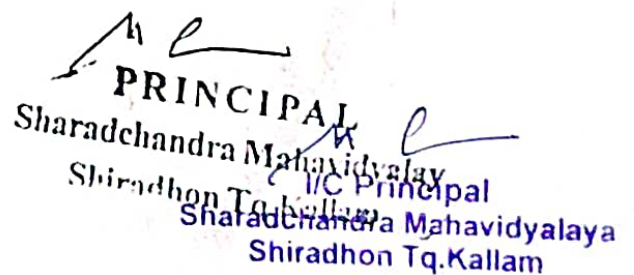 PRINCIPAL
Sharadchandra Mahavidyalay
Shiradhon Tq.Kallam
I/C Principal
Sharadchandra Mahavidyalaya
Shiradhon Tq.Kallam